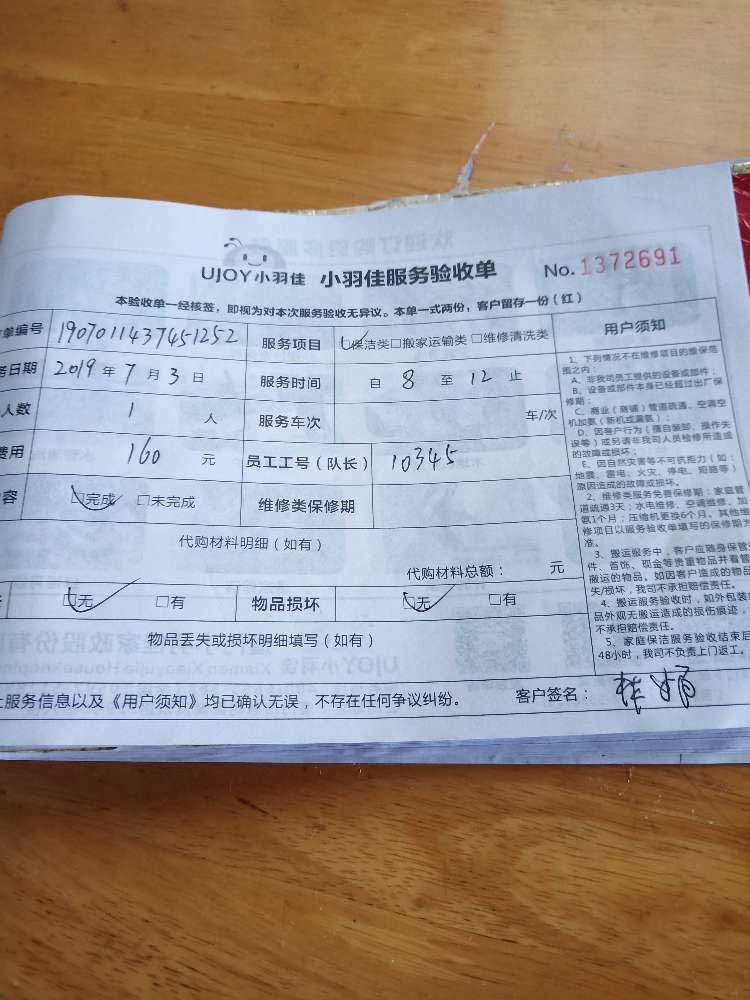 UJOY小羽佳 小羽佳服务验收单 No.1372691
本验收单一经核签，即视为对本次服务验收无异议。本单一式两份，客户留存一份（红）
单编号 1907011437451252 服务项目 ☑保洁类□搬家运输类□维修清洗类 用户须知
务日期 2019年7月3日 服务时间 自 8 至 12 止
人数 1 人 服务车次 车/次
费用 160 元 员工工号（队长） 10345
内容 ☑完成 □未完成 维修类保修期
代购材料明细（如有）
代购材料总额： 元
☑无 □有 物品损坏 ☑无 □有
物品丢失或损坏明细填写（如有）
上服务信息以及《用户须知》均已确认无误，不存在任何争议纠纷。 客户签名：
1、下列情况不在维修项目的维保范
围之内：
A、非我司员工提供的设备或部件；
B、设备或部件本身已经超过出厂保
修期；
C、商业（商铺）管道疏通、空调空
机加氨（新机或漏氨）；
D、因客户行为（擅自装卸、操作失
误等）或另请非我司人员检修所造成
的故障或损坏；
E、因自然灾害等不可抗拒力（如：
地震、雷电、火灾、停电、短路等）
原因造成的故障或损坏。
2、维修类服务免费保修期：家庭管
道疏通3天；水电维修、空调维修、加
氨1个月；压缩机更换6个月。其他维
修项目以服务验收单填写的保修期为
准。
3、搬运服务中，客户应随身保管
件、首饰、现金等贵重物品并看管
搬运的物品。如因客户造成的物品
失/损坏，我司不承担赔偿责任。
4、搬运服务验收时，如外包装
品外观无搬运造成的损伤痕迹，
不承担赔偿责任。
5、家庭保洁服务验收结束后
48小时，我司不负责上门返工。